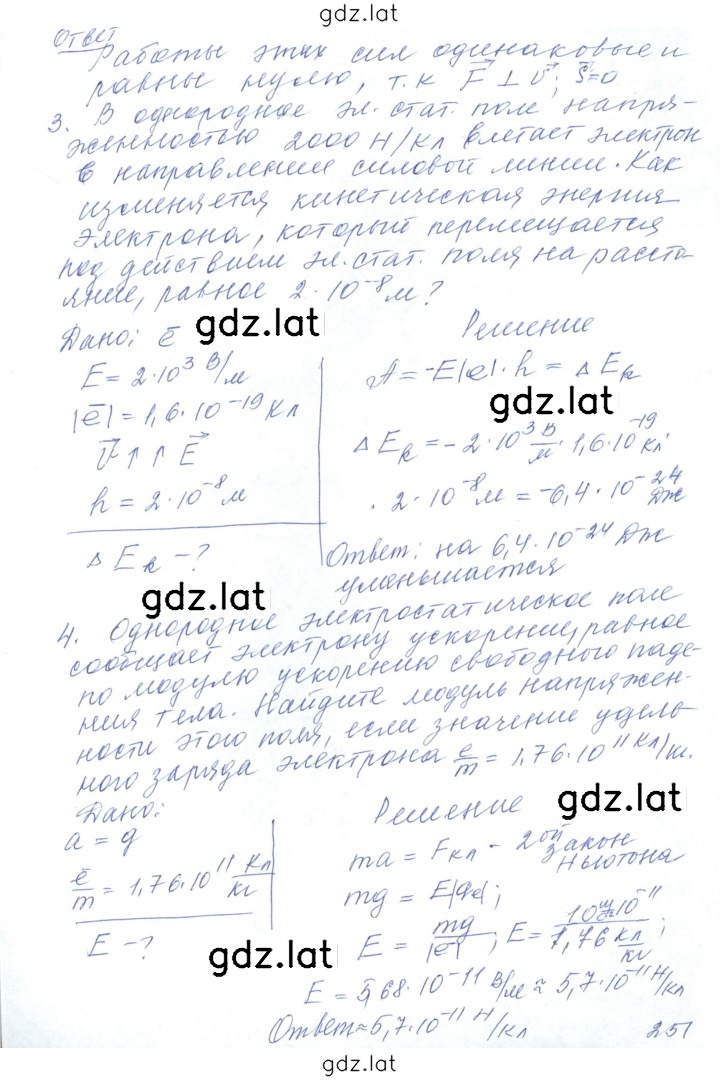 gdz.lat
Ответ
Работы этих сил одинаковые и
равны нулю, т.к F⃗ ⊥ v⃗; S⃗=0
3. В однородное эл.стат. поле напря-
женностью 2000 Н/Кл влетает электрон
в направлении силовой линии. Как
изменяется кинетическая энергия
электрона, который перемещается
под действием эл.стат. поля на рассто-
яние, равное 2·10⁻⁸ м?
Дано: ē
gdz.lat
E = 2·10³ В/м
|ē| = 1,6·10⁻¹⁹ Кл
v⃗ ↑↑ E⃗
h = 2·10⁻⁸ м
ΔEk - ?
Решение
A = -E|e|·h = ΔEk
gdz.lat
ΔEk = -2·10³ В/м · 1,6·10⁻¹⁹ Кл·
· 2·10⁻⁸ м = -6,4·10⁻²⁴ Дж
Ответ: на 6,4·10⁻²⁴ Дж
уменьшается
gdz.lat
4. Однородное электростатическое поле
сообщает электрону ускорение, равное
по модулю ускорению свободного паде-
ния тела. Найдите модуль напряжен-
ности этого поля, если значение удель-
ного заряда электрона e/m = 1,76·10¹¹ Кл/кг.
Дано:
a = g
ē/m = 1,76·10¹¹ Кл/кг
E - ?
gdz.lat
Решение
gdz.lat
ma = Fкл - 2ой закон
Ньютона
mg = E|qe|;
E = mg/|ē|; E = 10·10⁻¹¹/1,76 Кл/кг;
E = 5,68·10⁻¹¹ В/м ≈ 5,7·10⁻¹¹ Н/Кл
Ответ ≈ 5,7·10⁻¹¹ Н/Кл
251
gdz.lat